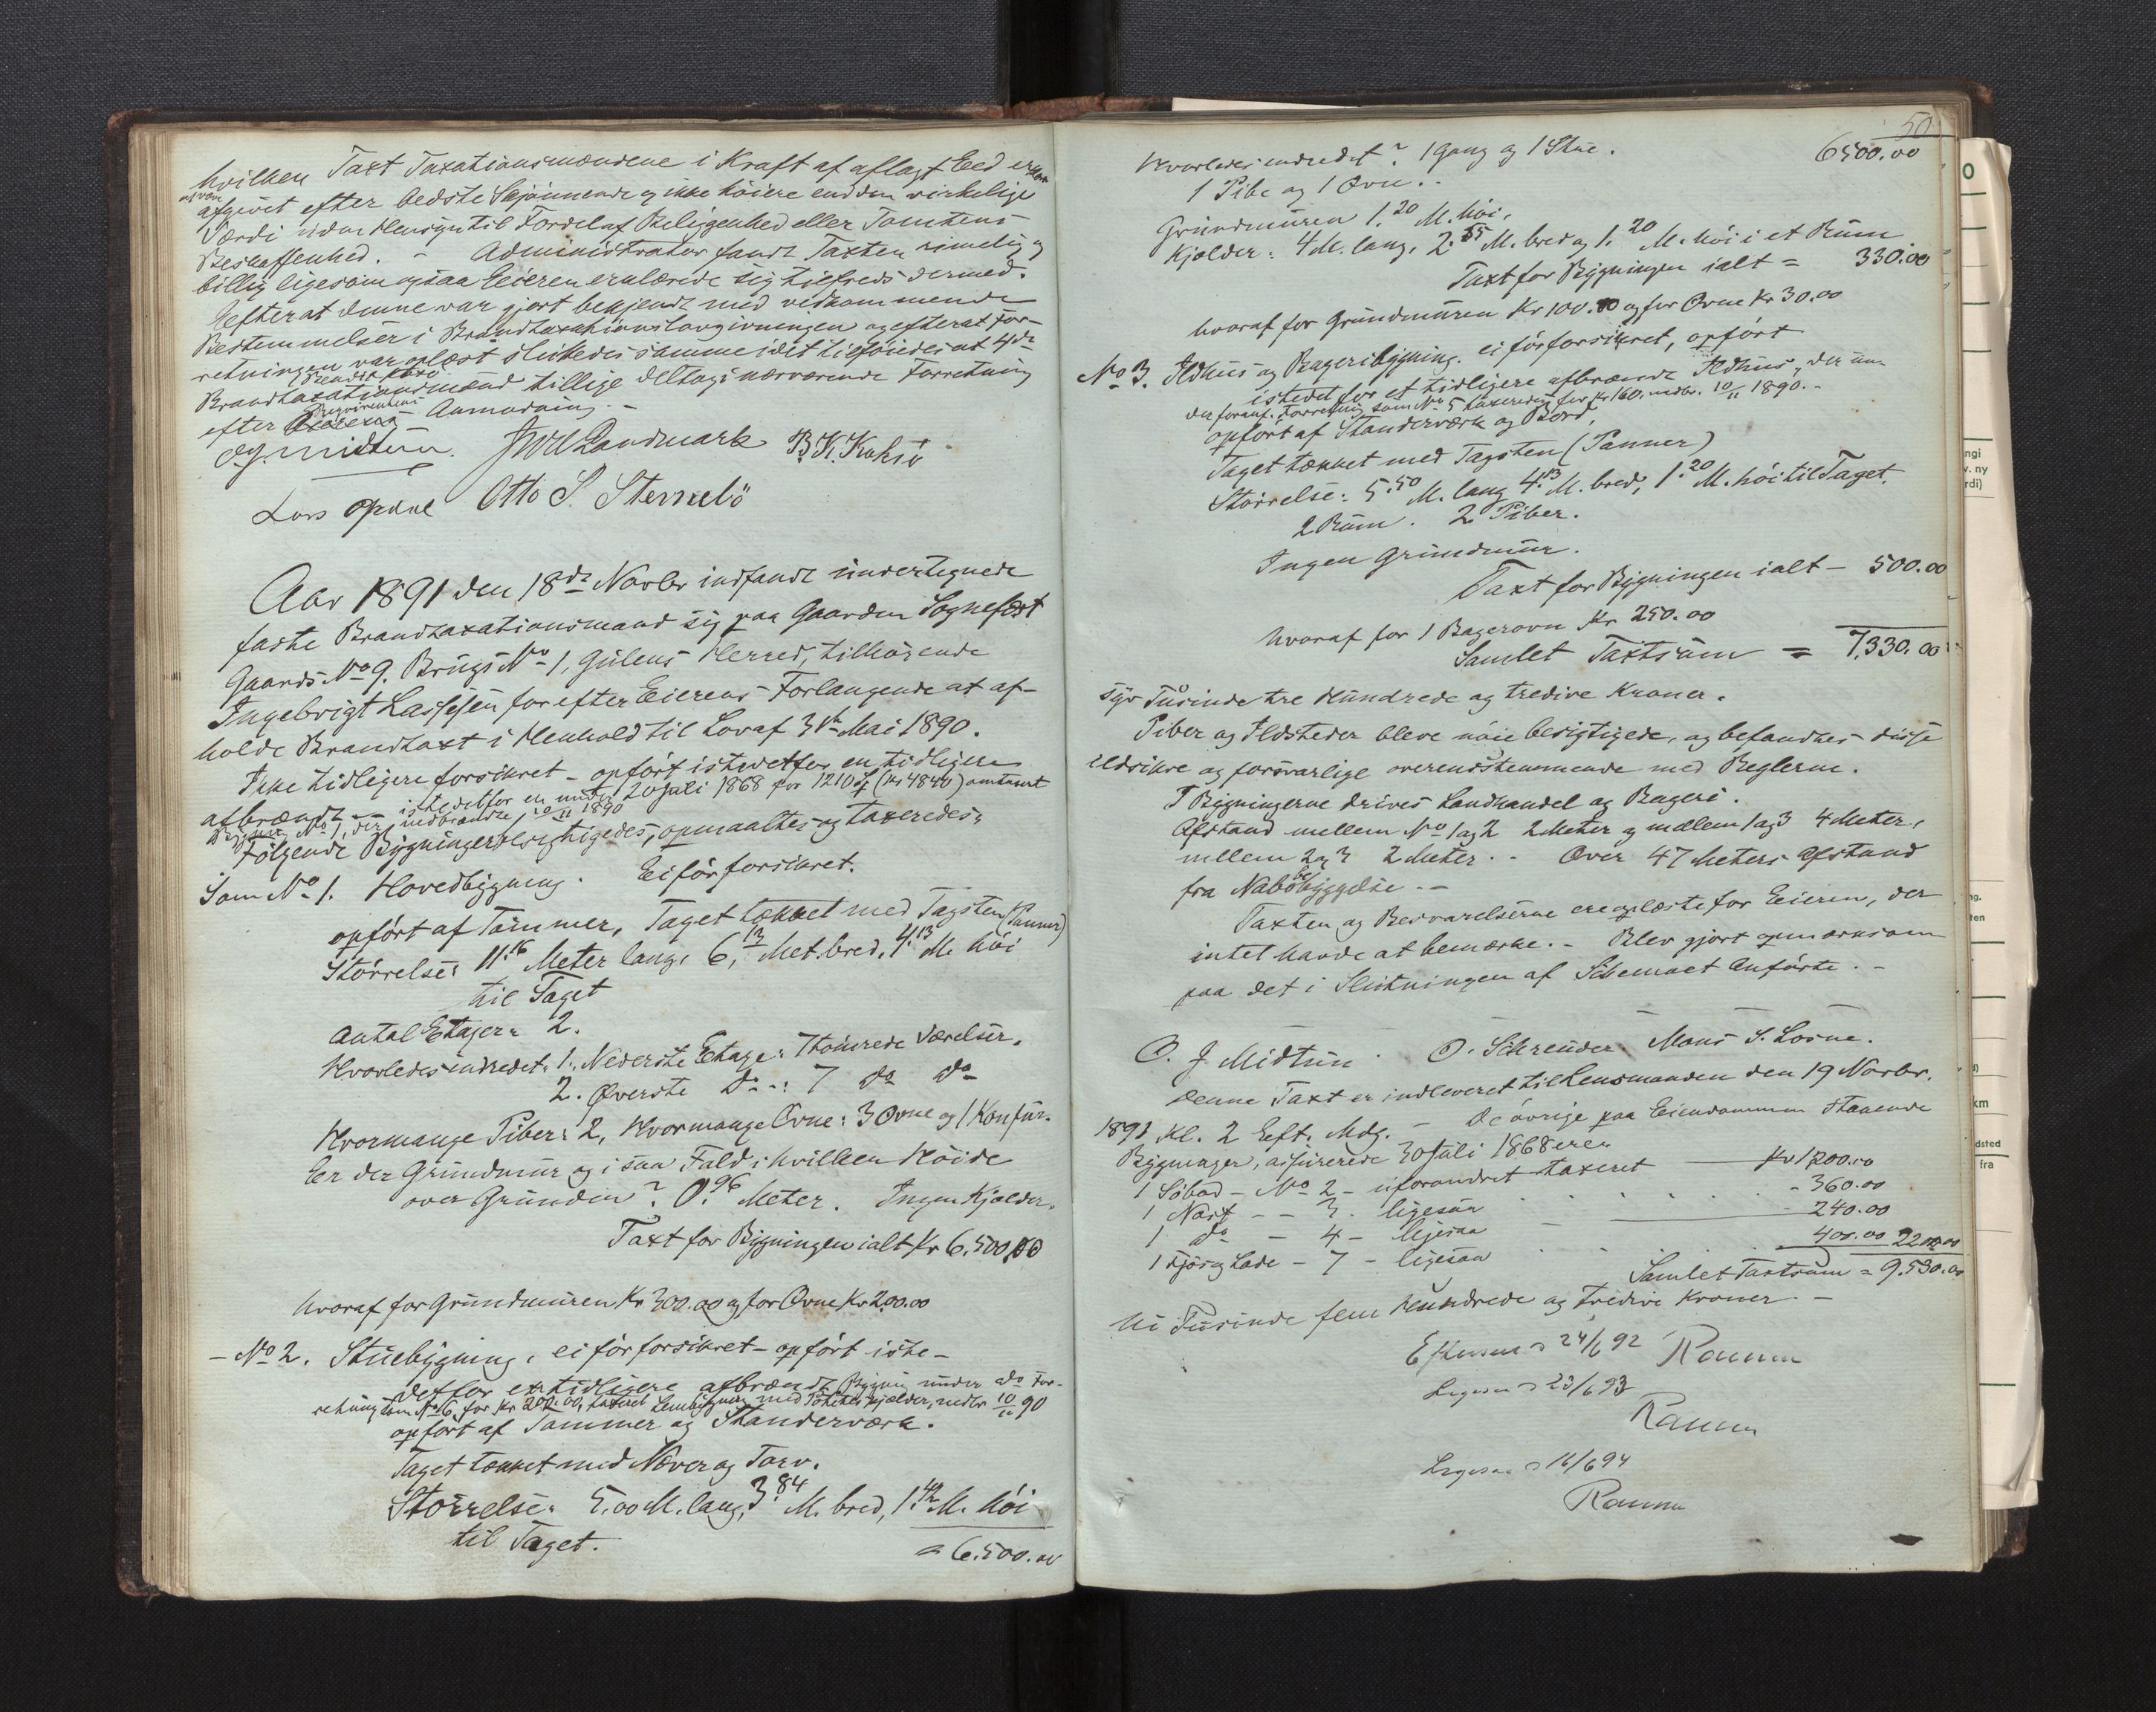 hvilken Taxt Taxationsmændene i Kraft af aflagt Eed
at være
afgivet efter bedste Skjønnende og ikke höiere end den virkelige
Værdi uden Hensyn til Fordel af Beliggenhed eller Tomtens
Beskaffenhed. - Administrator fandt Taxten rimelig og
billig ligesom ogsaa Eieren erklærede sig tilfreds dermed.
Efterat denne var gjort bekjendt med vedkommende
Bestemmelser i Brandtaxationslovgivningen og efterat For-
retningen var oplæst sluttedes samme idet tilföiedes at 4de
Brandtaxationsmænd tillige deltog i nærværende Forretning
Requirentens
efter Anmodning. -
O. J. Midtun. JWLandmark B. K. Kaksö
Lars Opdal Otto S. Sternebö
Aar 1891 den 18de Novbr indfandt undertegnede
faste Brandtaxationsmænd sig paa Gaarden Sognefæst
Gaards No 9. Brugs No 1, Gulens Herred, tilhörende
Ingebrigt Lassesen for efter Eierens Forlangende at af-
holde Brandtaxt i Henhold til Lov af 31te Mai 1890.
Ikke tidligere forsikret - opfört istedetfor en tidligere
afbrændt istedetfor en under 20 Juli 1868 for 1210 Spd (Kr 4840) omtaxeret
Bygning No 1, der nedbrændte 10/11 1890
Fölgende Bygninger besigtigedes, opmaaltes og taxeredes:
Som No 1. Hovedbygning. Ei för forsikret.
opfört af Tömmer, Taget tækket med Tagsten (Panner)
Störrelse: 11.16 Meter lang, 6.13 Met. bred, 4.13 M. höi
til Taget
Antal Etager: 2.
Hvorledes indredet: 1. Nederste Etage: 7 tömrede Værelser.
2. Øverste Do : 7 do do
Hvormange Piber: 2, Hvormange Ovne: 3 Ovne og 1 Komfur.
Er der Grundmur og i saa Fald i hvilken Höide
over Grunden? 0.96 Meter. Ingen Kjælder.
Taxt for Bygningen ialt Kr 6.500,00
hvoraf for Grundmuren Kr 300.00 og for Ovne Kr 200.00
- No 2. Stuebygning, ei för forsikret - opfört iste-
detfor en tidligere afbrændt Bygning under do For-
retning som No 6, for Kr 200.00, taxeret med Potetkjælder, nedbr 10/11 90
opfört af Tömmer og Standerværk.
Taget tækket med Næver og Torv.
Störrelse: 5.00 M. lang, 3.84 M. bred, M. höi
til Taget.
= 6.500.00
50
Hvorledes indredet? 1 Gang og 1 Stue. 6500.00
1 Pibe og 1 Ovn. -
Grundmuren 1.20 M. höi,
Kjælder: 4 M. lang, 2.55 M. bred og 1.20 M. höi i et Rum
Taxt for Bygningen ialt = 330.00
hvoraf for Grundmuren Kr 100.00 og for Ovne Kr 30.00
No 3. Ildhus og Bageribygning. ei för forsikret, opfört
istedetfor et tidligere afbrændt Ildhus, der un-
der foranf. Forretning som No 5 taxeredes for Kr 160. nedbr. 10/11 1890. -
opfört af Standerværk og Bord,
Taget tækket med Tagsten (Panner)
Störrelse: 5.50 M. lang 4.13 M. bred, 1.20 M. höi til Taget.
2 Rum. 2 Piber.
Ingen Grundmur.
Taxt for Bygningen ialt - 500.00
hvoraf for 1 Bagerovn Kr 250.00
Samlet Taxtsum = 7.330.00
syv Tusinde tre Hundrede og tredive Kroner.
Piber og Ildsteder bleve nöie besigtigede, og befandtes disse
ildsikre og forsvarlige overensstemmende med Reglerne.
I Bygningerne drives Landhandel og Bageri.
Afstand mellem No 1 og 2 2 Meter og mellem 1 og 3 4 Meter,
mellem 2 og 3 2 Meter. - Over 47 Meters Afstand
fra Nabobebyggelse. -
Taxten og Besvarelserne ere oplæste for Eieren, der
intet havde at bemærke. - Blev gjort opmærksom
paa det i Slutningen af Schemaet Anförte. -
O. J Midtun. O. Schreuder. Mons S. Losne.
Denne Taxt er indleveret til Lensmanden den 19 Novbr.
1891 Kl. 2 Eft. Mdg. - De övrige paa Eiendommen staaende
Bygninger, assurerede 30 Juli 1868 ere:
1 Söbod - No 2 - uforandret taxeret Kr 1200.00
1 Nøst - - 3. ligesaa - 360.00
1 do - 4 - ligesaa 240.00
1 Fjös og Lade - 7 - ligesaa 400.00 2200.00
Samlet Taxtsum = 9.530.00
Ni Tusinde fem Hundrede og tredive Kroner. -
Efterseet 24/6 92
Ligesaa 23/6 93
Ligesaa 16/6 94